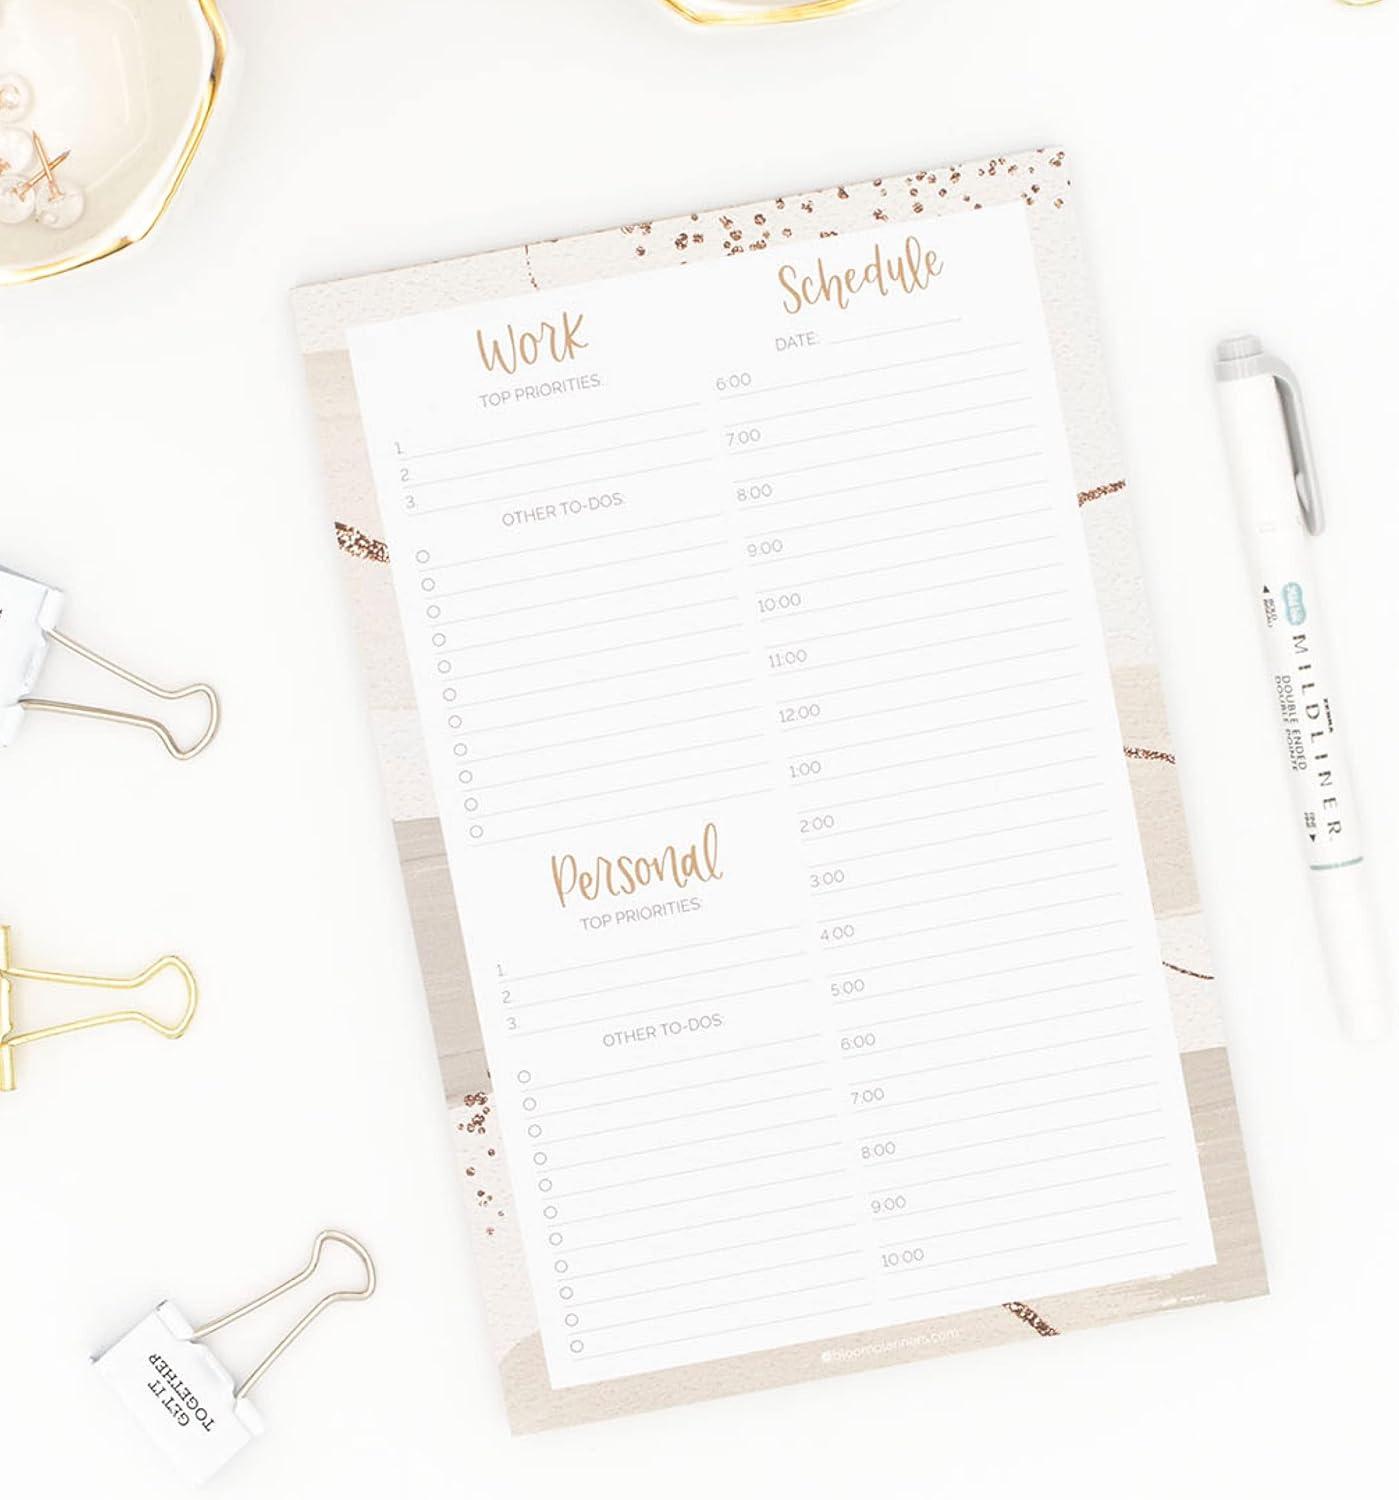 Work
TOP PRIORITIES:
1.
2.
3.
OTHER TO-DOS:
Personal
TOP PRIORITIES:
1.
2.
3.
OTHER TO-DOS:
Schedule
DATE:
6:00
7:00
8:00
9:00
10:00
11:00
12:00
1:00
2:00
3:00
4:00
5:00
6:00
7:00
8:00
9:00
10:00
@bloomplanners.com
ZEBRA
MILDLINER
DOUBLE ENDED
DOUBLE POINTE
BOLD
FINE
GET IT
TOGETHER